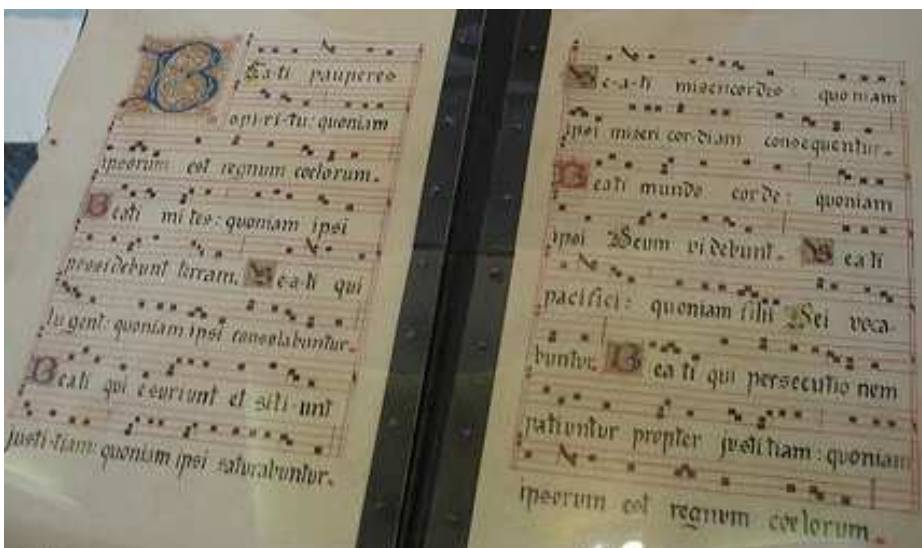 Bea-ti pauperes
spi-ri-tu: quoniam
ipsorum est regnum coelorum.
Beati mites: quoniam ipsi
possidebunt terram. Be-a-ti qui
lugent: quoniam ipsi consolabuntur.
Beati qui esuriunt et siti-unt
justi-tiam: quoniam ipsi saturabuntur.
Be-a-ti misericordes: quoniam
ipsi misericordiam consequentur.
Beati mundo corde: quoniam
ipsi Deum videbunt. Beati
pacifici: quoniam filii Dei voca-
buntur. Beati qui persecutionem
patiuntur propter justitiam: quoniam
ipsorum est regnum coelorum.